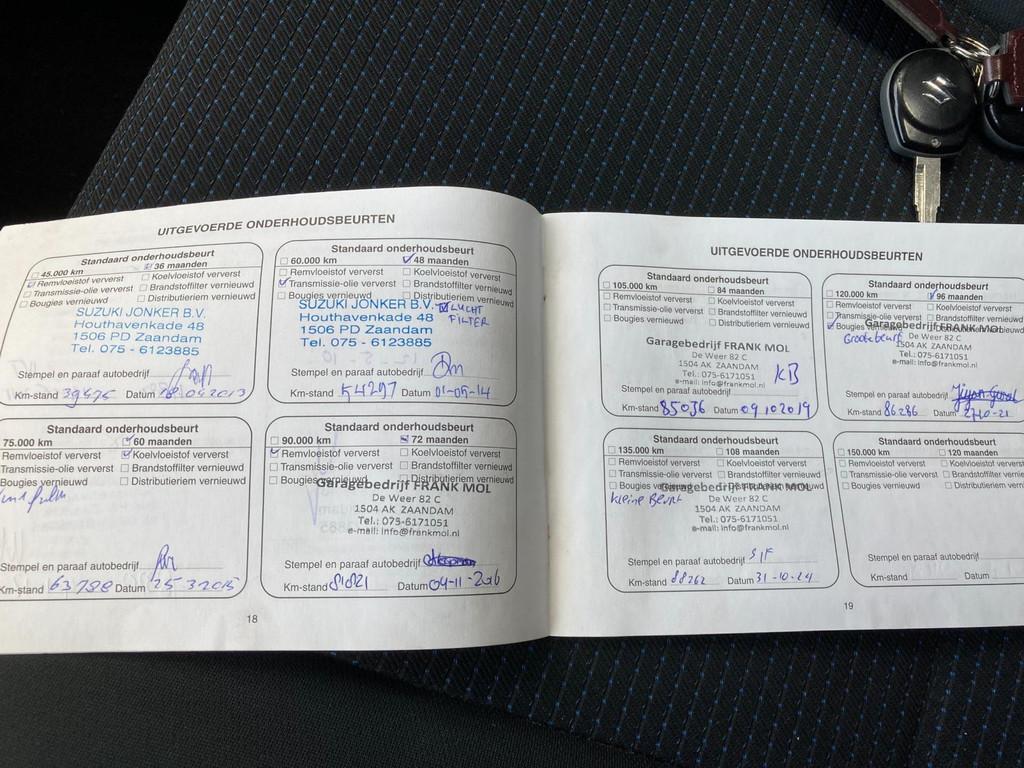 UITGEVOERDE ONDERHOUDSBEURTEN
Standaard onderhoudsbeurt
45.000 km 36 maanden
Remvloeistof ververst Koelvloeistof ververst
Transmissie-olie ververst Brandstoffilter vernieuwd
Bougies vernieuwd Distributieriem vernieuwd
SUZUKI JONKER B.V.
Houthavenkade 48
1506 PD Zaandam
Tel. 075 - 6123885
Stempel en paraaf autobedrijf
Km-stand 39475 Datum 2013
Standaard onderhoudsbeurt
60.000 km 48 maanden
Remvloeistof ververst Koelvloeistof ververst
Transmissie-olie ververst Brandstoffilter vernieuwd
Bougies vernieuwd Distributieriem vernieuwd
SUZUKI JONKER B.V. LUCHT
Houthavenkade 48 FILTER
1506 PD Zaandam
Tel. 075 - 6123885
Stempel en paraaf autobedrijf
Km-stand 54297 Datum 01-05-14
Standaard onderhoudsbeurt
75.000 km 60 maanden
Remvloeistof ververst Koelvloeistof ververst
Transmissie-olie ververst Brandstoffilter vernieuwd
Bougies vernieuwd Distributieriem vernieuwd
Stempel en paraaf autobedrijf
Km-stand 63788 Datum 25 3 2015
Standaard onderhoudsbeurt
90.000 km 72 maanden
Remvloeistof ververst Koelvloeistof ververst
Transmissie-olie ververst Brandstoffilter vernieuwd
Bougies vernieuwd Distributieriem vernieuwd
Garagebedrijf FRANK MOL
De Weer 82 C
1504 AK ZAANDAM
Tel.: 075-6171051
e-mail: info@frankmol.nl
Stempel en paraaf autobedrijf
Km-stand 81821 Datum 04-11-2016
18
UITGEVOERDE ONDERHOUDSBEURTEN
Standaard onderhoudsbeurt
105.000 km 84 maanden
Remvloeistof ververst Koelvloeistof ververst
Transmissie-olie ververst Brandstoffilter vernieuwd
Bougies vernieuwd Distributieriem vernieuwd
Garagebedrijf FRANK MOL
De Weer 82 C
1504 AK ZAANDAM
Tel.: 075-6171051
e-mail: info@frankmol.nl KB
Stempel en paraaf autobedrijf
Km-stand 85036 Datum 09 10 2019
Standaard onderhoudsbeurt
120.000 km 96 maanden
Remvloeistof ververst Koelvloeistof ververst
Transmissie-olie ververst Brandstoffilter vernieuwd
Bougies vernieuwd Distributieriem vernieuwd
Garagebedrijf FRANK MOL
Grote beurt De Weer 82 C
1504 AK ZAANDAM
Tel.: 075-6171051
e-mail: info@frankmol.nl
Stempel en paraaf autobedrijf
Km-stand 86286 Datum 27-10-21
Standaard onderhoudsbeurt
135.000 km 108 maanden
Remvloeistof ververst Koelvloeistof ververst
Transmissie-olie ververst Brandstoffilter vernieuwd
Bougies vernieuwd Distributieriem vernieuwd
Garagebedrijf FRANK MOL
kleine Beurt De Weer 82 C
1504 AK ZAANDAM
Tel.: 075-6171051
e-mail: info@frankmol.nl
Stempel en paraaf autobedrijf
Km-stand 88262 Datum 31-10-24
Standaard onderhoudsbeurt
150.000 km 120 maanden
Remvloeistof ververst Koelvloeistof ververst
Transmissie-olie ververst Brandstoffilter vernieuwd
Bougies vernieuwd Distributieriem vernieuwd
Stempel en paraaf autobedrijf
Km-stand Datum
19